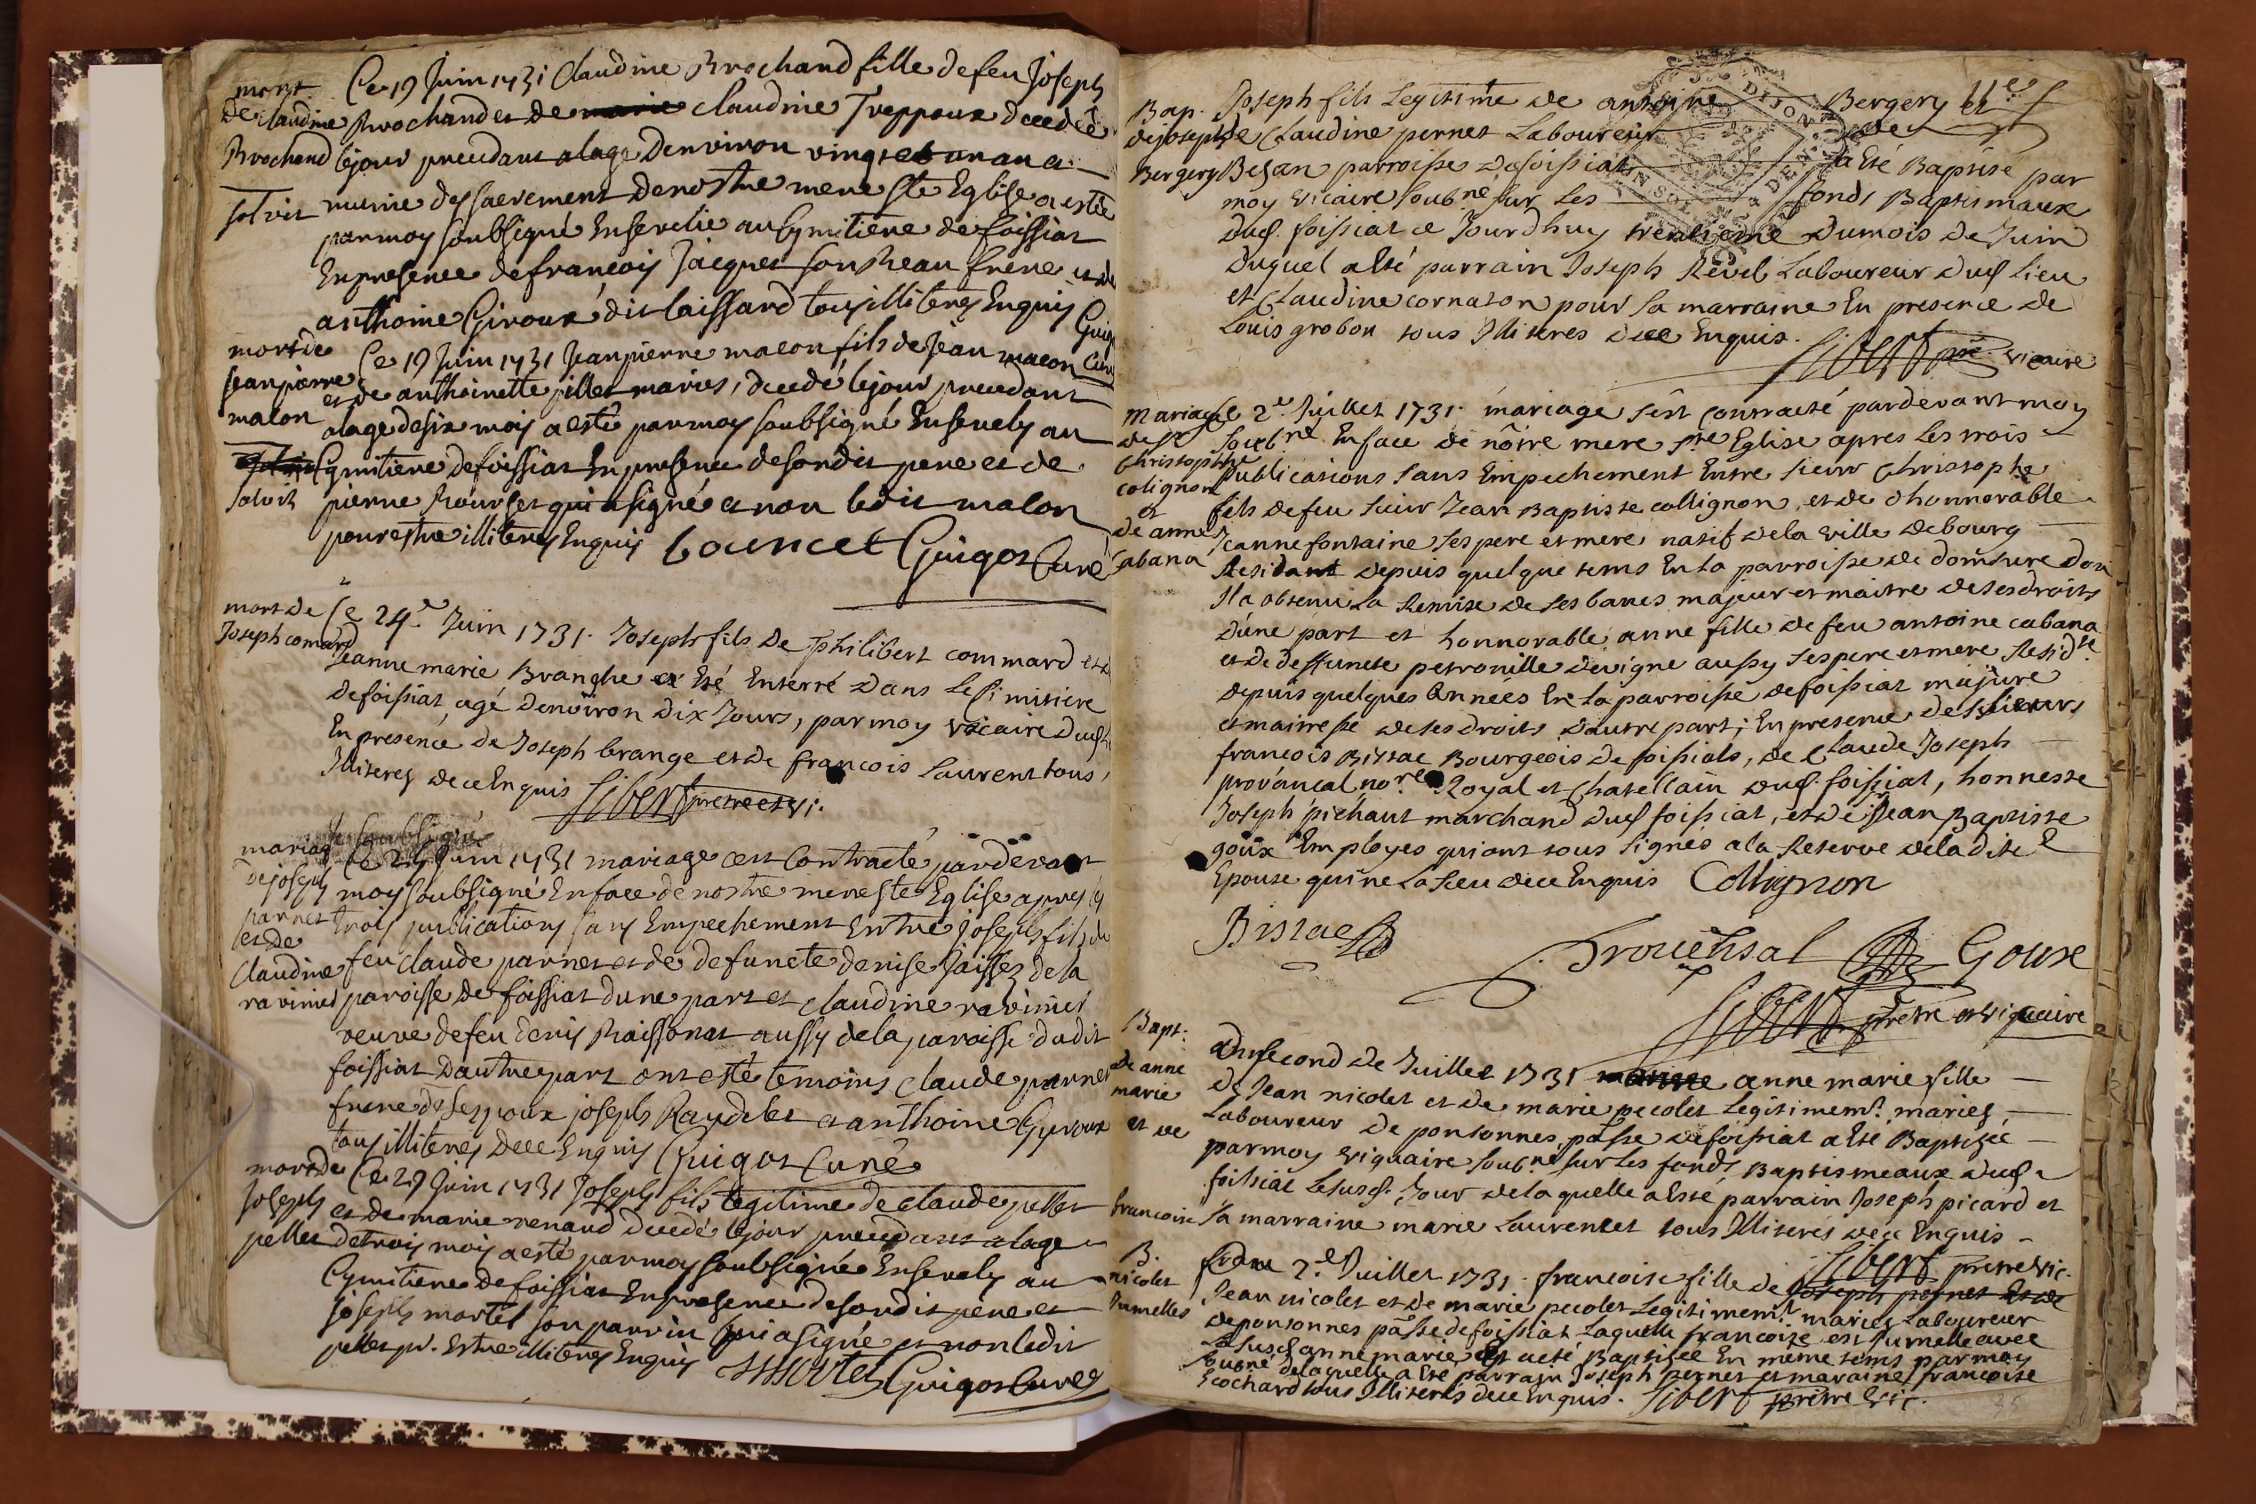 mort
de claudine
Brochand
solvit
Ce 19 Juin 1731 Claudine Brochand fille de feu Joseph
Brochand et de marie claudine Treppoux decedée
le jour precedant a lage denviron vingt et un an a
munie des sacrement de nostre mere ste Eglise a estée
par moy soubsigné Ensevelie au Cymitiere de foissiat
En presence de francois Jacquet son Beau frere et de
anthoine Giroux dit laissard tous illiteres Enquis Guigot
Curé
mort de
Jean pierre
malon
solvit
Ce 19 Juin 1731 Jean pierre macon fils de Jean macon
et de anthoinette pillet maries, decedé le jour precedant
a lage de six mois a esté par moy soubsigné Ensevely au
Cymitiere de foissiat En presence de son dit pere et de
pierre Bourset qui a signé et non ledit malon
pour estre illiteres Enquis bourcet Guigot Curé
mort de
Joseph comard
Ce 24e Juin 1731. Joseph fils de philibert commard et de
Jeanne marie Branghe a Eté Enterré dans le Cimitiere
de foissiat, agé denviron dix Jours, par moy vicaire dud. lieu
En presence de Joseph brange et de francois Laurent tous
Illiteres de ce Enquis Sibert pretre et vi.
mariage
de joseph
parnet
et de
claudine
ravinet
Je soubsigné
Ce 25 Juin 1731 mariage cest Contracté par devant
moy soubsigné En face de nostre mere ste Eglise apres les
trois publications sans Empechement Entre joseph fils de
feu claude parnet et de defuncte denise Jaisses de la
paroisse de foissiat dune part et claudine ravinet
veuve de feu denis Raissonat aussy de la paroisse dudit
foissiat dautre part ont esté temoins claude parnet
frere de lespoux joseph Raydelet et anthoine Gyroux
tous illiteres de ce Enquis Guigot Curé
mort de
Joseph
pellet
Ce 29 Juin 1731 Joseph fils legitime de claude pellet
et de marie renaud decedé le jour precedant a lage
de trois mois a esté par moy soubsigné Ensevely au
Cymitiere de foissiat En presence de son dit pere et
joseph mortel son parrin qui a signé et non ledit
pellet pr. Estre illiteres Enquis J Mortel Guigot Curé
Bap.
de joseph
Bergery
Joseph fils Legitime de antoine Bergery et
de Claudine pernet Laboureur de
Besan parroisse de foissiat a Eté Baptisé par
moy vicaire soubné sur les fonds Baptismaux
dud. foissiat ce Jourdhuy trentieme du mois de Juin
duquel a Eté parrain Joseph Revel Laboureur dud. lieu
et Claudine cornaton pour sa marraine En presence de
Louis grobon tous Illiteres de ce Enquis.
Sibert pre. vicaire
Mariage
de sr
Christophe
colignon
et
de anne
Cabana
Ce 2e. Juillet 1731. mariage s'est contracté pardevant moy
soubné En face de nôtre mere ste Eglise apres les trois
publications sans Empechement Entre sieur Christophe
fils de feu sieur Jean Baptiste collignon, et de dhonnorable
Jeanne fontaine ses pere et mere natif de la ville de bourg
Residant depuis quelque tems En la parroisse de domsure dou
Il a obtenu la Remise de ses bancs majeur et maitre de ses droits
dune part et honnorable anne fille de feu antoine cabana
et de deffuncte petronille devigne aussy ses pere et mere Residte
depuis quelques Années En la parroisse de foissiat majure
et maitresse de ses droits dautre part; En presence de sieurs
francois Bizzac Bourgeois de foissials, de Claude Joseph
provancal nore. Royal et Chatellain dud. foissiat, honneste
Joseph pichaut marchand dud foissiat, et de sr Jean Baptiste
goux Employes qui ont tous signés a la Reserve de la dite
Epouse qui ne la sceu de ce Enquis Collignon
Bizzac
Prouensal Goux
Sibert pretre et viquaire
Bapt.
de anne
marie
et de
francoise
Du second de Juillet 1731 anne marie fille
de Jean nicolet et de marie pecolet Legitimemt. mariés
Laboureur de ponsonnes, pâsse de foissiat a Eté Baptisée
par moy viquaire soubné. sur les fonds Baptismeaux dud.
foissiat le susd. Jour de laquelle a Esté parrain Joseph picard et
sa marraine marie Laurencet tous Illiteres de ce Enquis
Sibert pretre vic.
B.
nicolet
Jumelles
Du 2e Juillet 1731. francoise fille de Joseph pernet Et de
Jean nicolet et de marie pecolet Legitimemt. mariés Laboureur
de ponsonnes pâsse de foissiat Laquelle francoise est Jumelle avec
la susd. anne marie et a eté Baptisée En meme tems par moy
soubné de laquelle a Eté parrain Joseph pernet et maraine francoise
Ecochard tous Illiteres de ce Enquis. Sibert pretre vic.